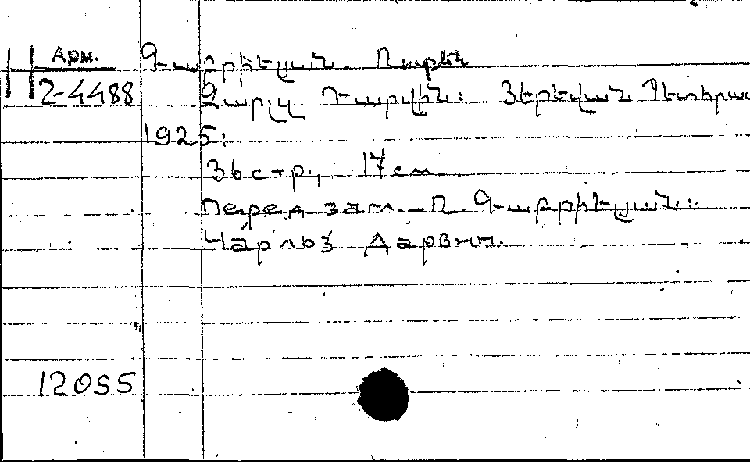 Арм. Գաբրիելյան Ռուբեն
2-4488 Չարլզ Դարվին: Յերեվան Պետհրատ
1925:
36 стр., 17 см
Перед заг. Ռ. Գաբրիելյան:
Чарльз Дарвин.
12055